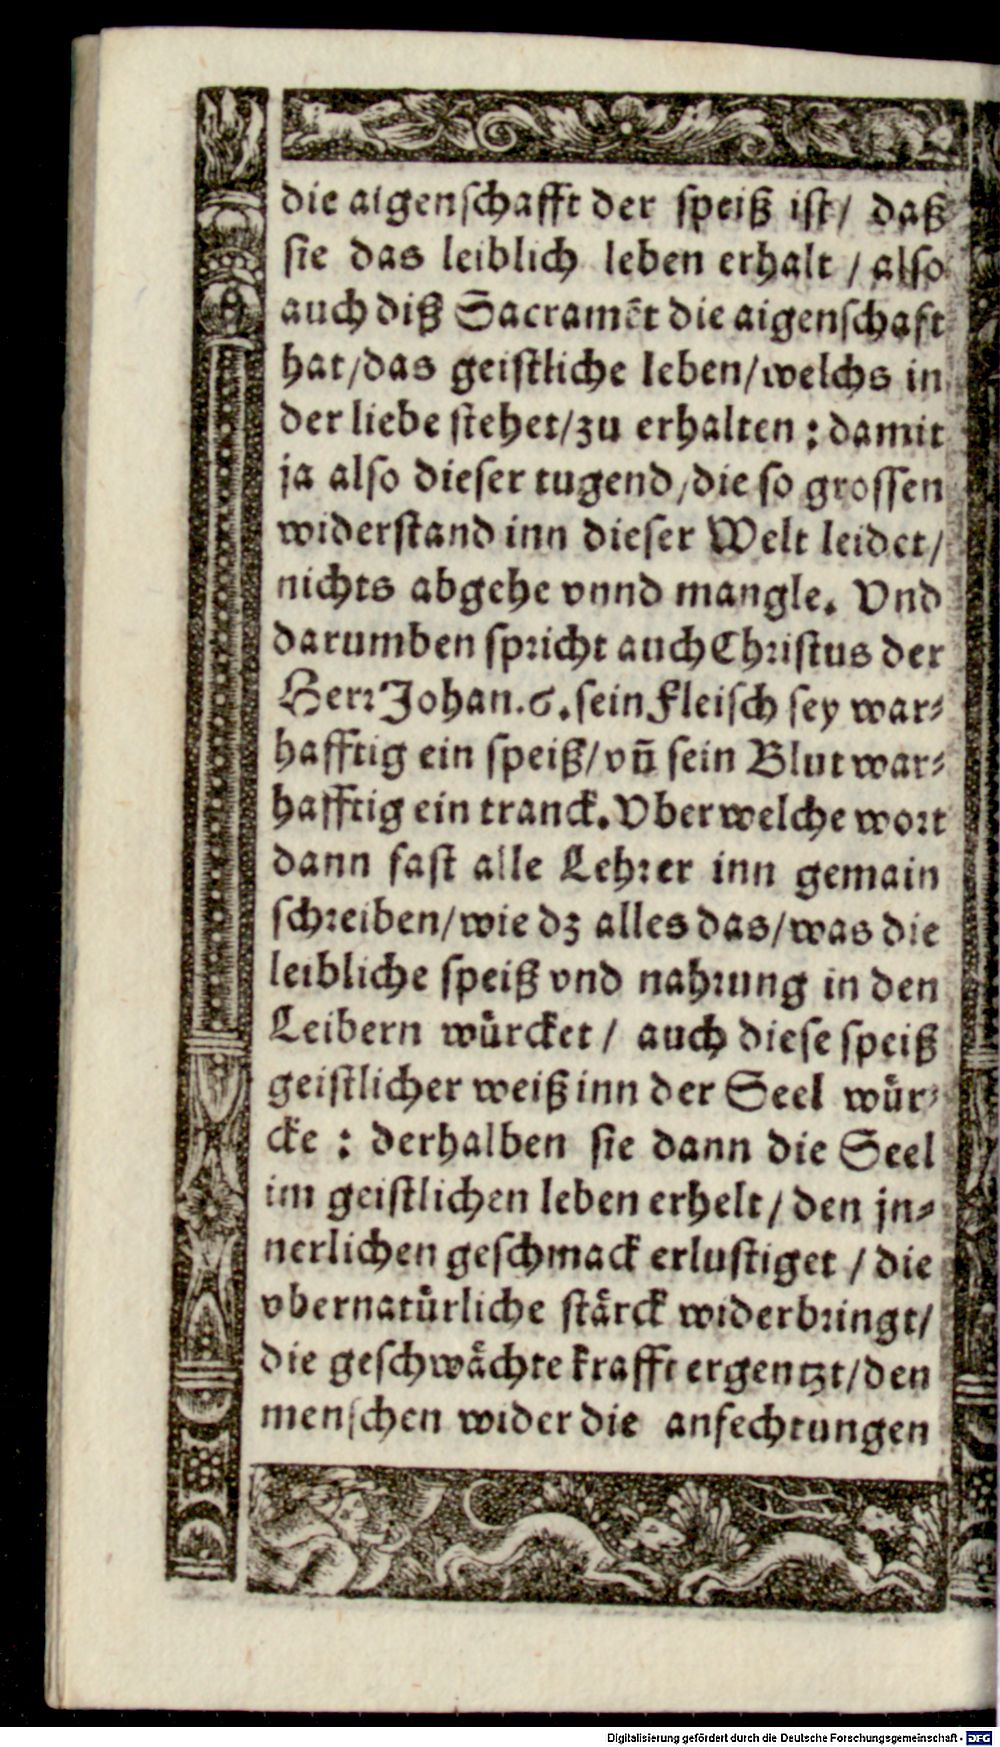 die aigenschafft der speiß ist/ daß
sie das leiblich leben erhalt / also
auch diß Sacramēt die aigenschaft
hat/das geistliche leben/welchs in
der liebe stehet/zu erhalten : damit
ja also dieser tugend/die so grossen
widerstand inn dieser Welt leidet/
nichts abgehe vnnd mangle. Vnd
darumben spricht auch Christus der
Herr Johan.6.sein Fleisch sey war⸗
hafftig ein speiß/vñ sein Blut war⸗
hafftig ein tranck. Vber welche wort
dann fast alle Lehrer inn gemain
schreiben/wie dz alles das/was die
leibliche speiß vnd nahrung in den
Leibern wuͤrcket / auch diese speiß
geistlicher weiß inn der Seel wuͤr⸗
cke : derhalben sie dann die Seel
im geistlichen leben erhelt / den jn⸗
nerlichen geschmack erlustiget / die
vbernatuͤrliche staͤrck widerbringt/
die geschwaͤchte krafft ergentzt/den
menschen wider die anfechtungen
Digitalisierung gefördert durch die Deutsche Forschungsgemeinschaft - DFG